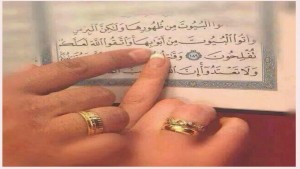 وا۟ ٱلْبُيُوتَ مِن ظُهُورِهَا وَلَٰكِنَّ ٱلْبِرَّ
وَأْتُوا۟ ٱلْبُيُوتَ مِنْ أَبْوَٰبِهَا وَٱتَّقُوا۟ ٱللَّهَ لَعَلَّكُمْ
تُفْلِحُونَ ١٨٩
وَلَا تَعْتَدُوٓا۟ إِنَّ